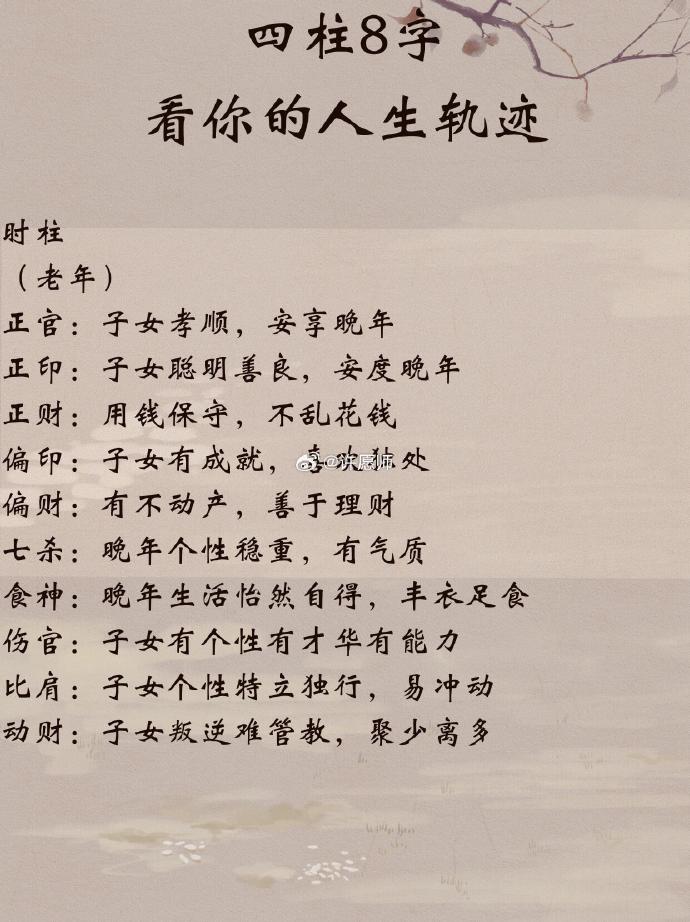 四柱8字
看你的人生轨迹
时柱
（老年）
正官：子女孝顺，安享晚年
正印：子女聪明善良，安度晚年
正财：用钱保守，不乱花钱
偏印：子女有成就，喜欢独处
@许愿师
偏财：有不动产，善于理财
七杀：晚年个性稳重，有气质
食神：晚年生活怡然自得，丰衣足食
伤官：子女有个性有才华有能力
比肩：子女个性特立独行，易冲动
动财：子女叛逆难管教，聚少离多